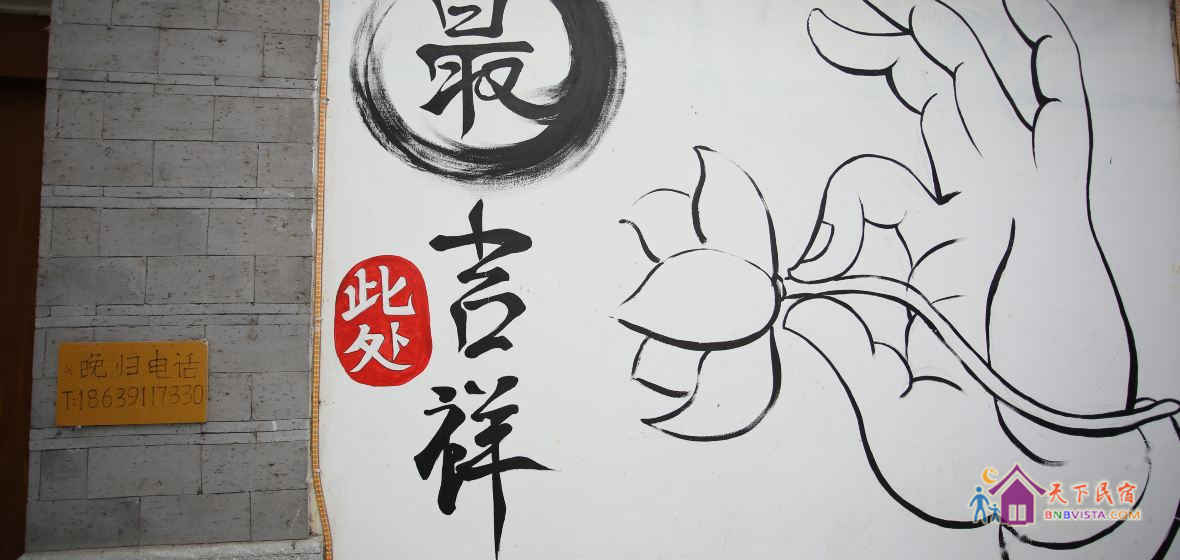 最
吉
祥
此处
晚归电话
T:18639117330
天下民宿
BNBVISTA.COM